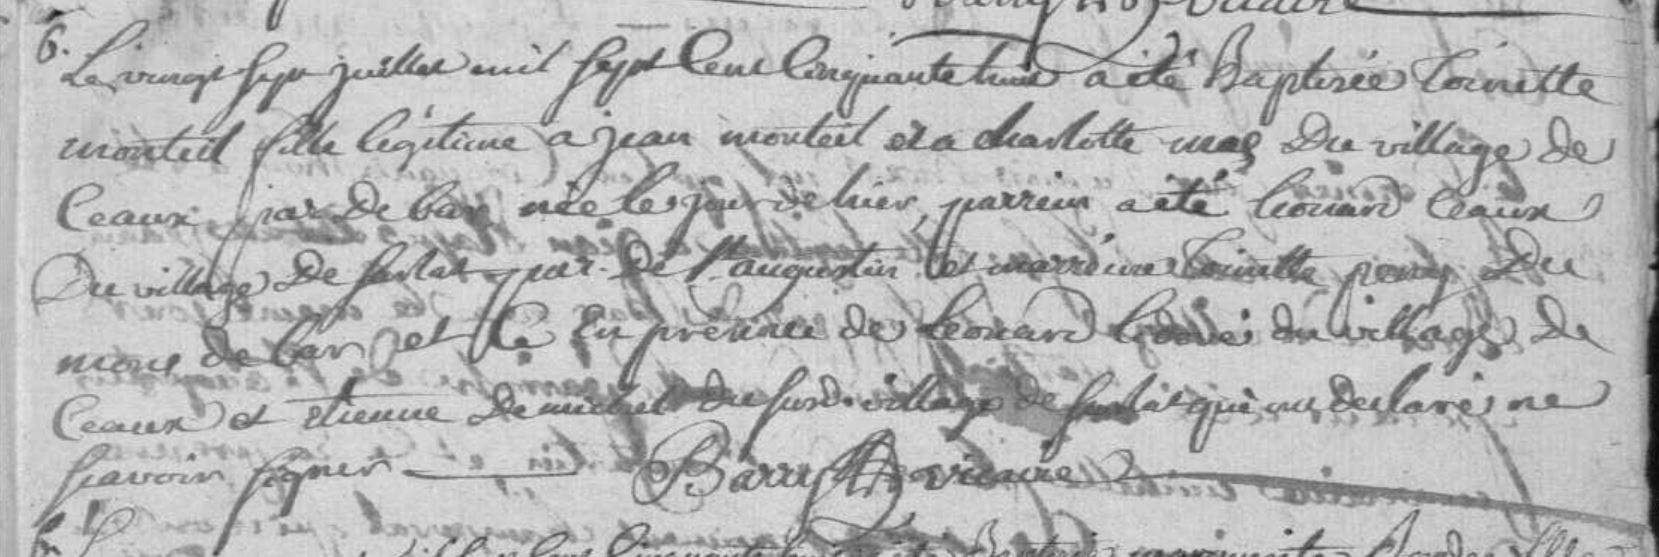 6. Le vingt sept juillet mil sept cent cinquante huit a été Baptisée toinette
monteil fille légitime a jean monteil et a charlotte mas Du village de
Ceaux par. De bar née le jour de hier, parrein a été leonard Ceaux
Du village De sarlat par. De st augustin et marreine toinette Du
mons de bar et ce En présence de leonard du village De
Ceaux et etienne Demichel du susd. village de sarlat qui ont declaré ne
scavoir signer vicaire